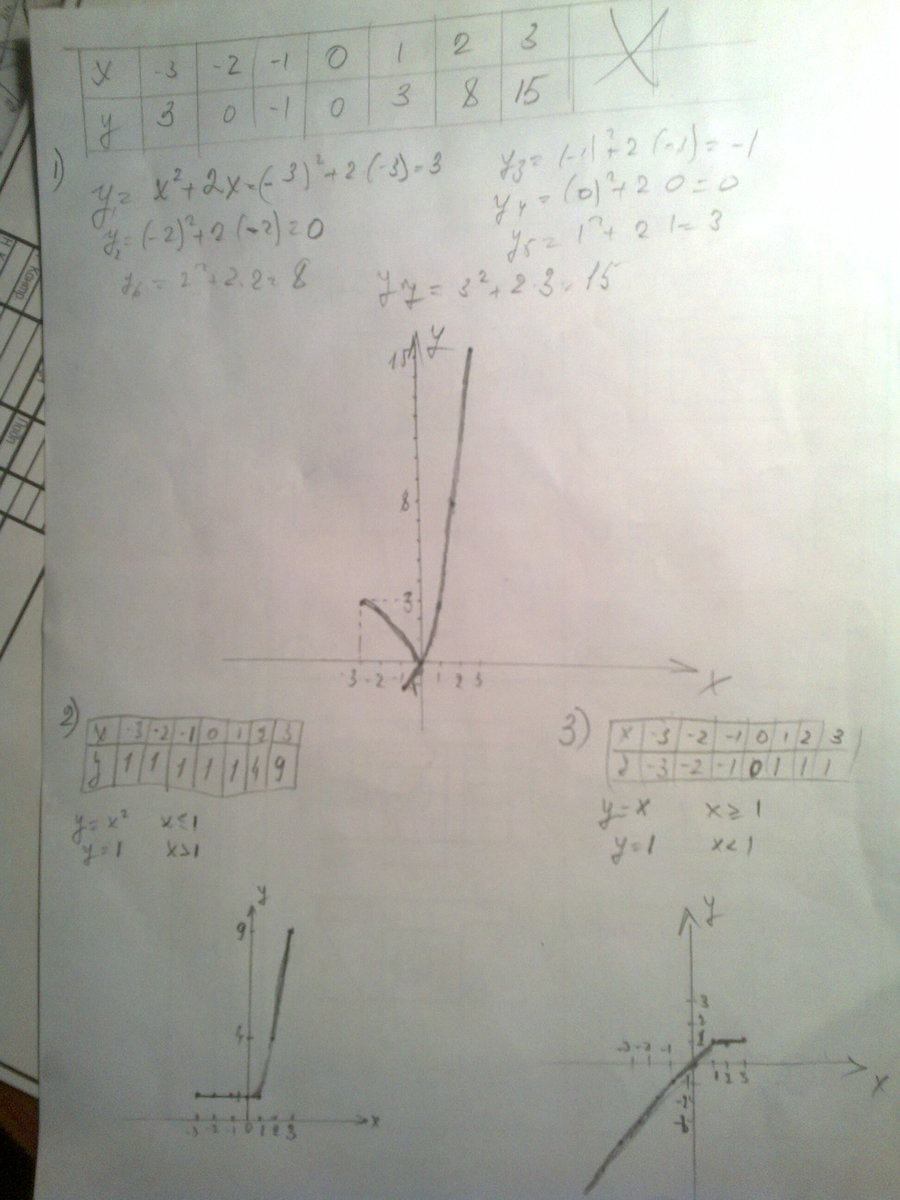 x -3 -2 -1 0 1 2 3
y 3 0 -1 0 3 8 15
1) y₁= x²+2x=(-3)²+2(-3)=3
y₃= (-1)²+2(-1)=-1
y₂=(-2)²+2(-2)=0
y₄=(0)²+2 0=0
y₅= 1²+ 2 1= 3
y₆=2²+2.2=8
y7= 3²+2.3=15
y
15
8
3
-3 -2 -1 1 2 3
x
2)
x -3 -2 -1 0 1 2 3
y 1 1 1 1 1 4 9
y=x² x≤1
y=1 x>1
3)
x -3 -2 -1 0 1 2 3
y -3 -2 -1 0 1 1 1
y=x x≥1
y=1 x<1
y
9
4
1
-3 -2 -1 0 1 2 3
x
y
3
2
1
-3 -2 -1
1 2 3
x
-1
-2
-3